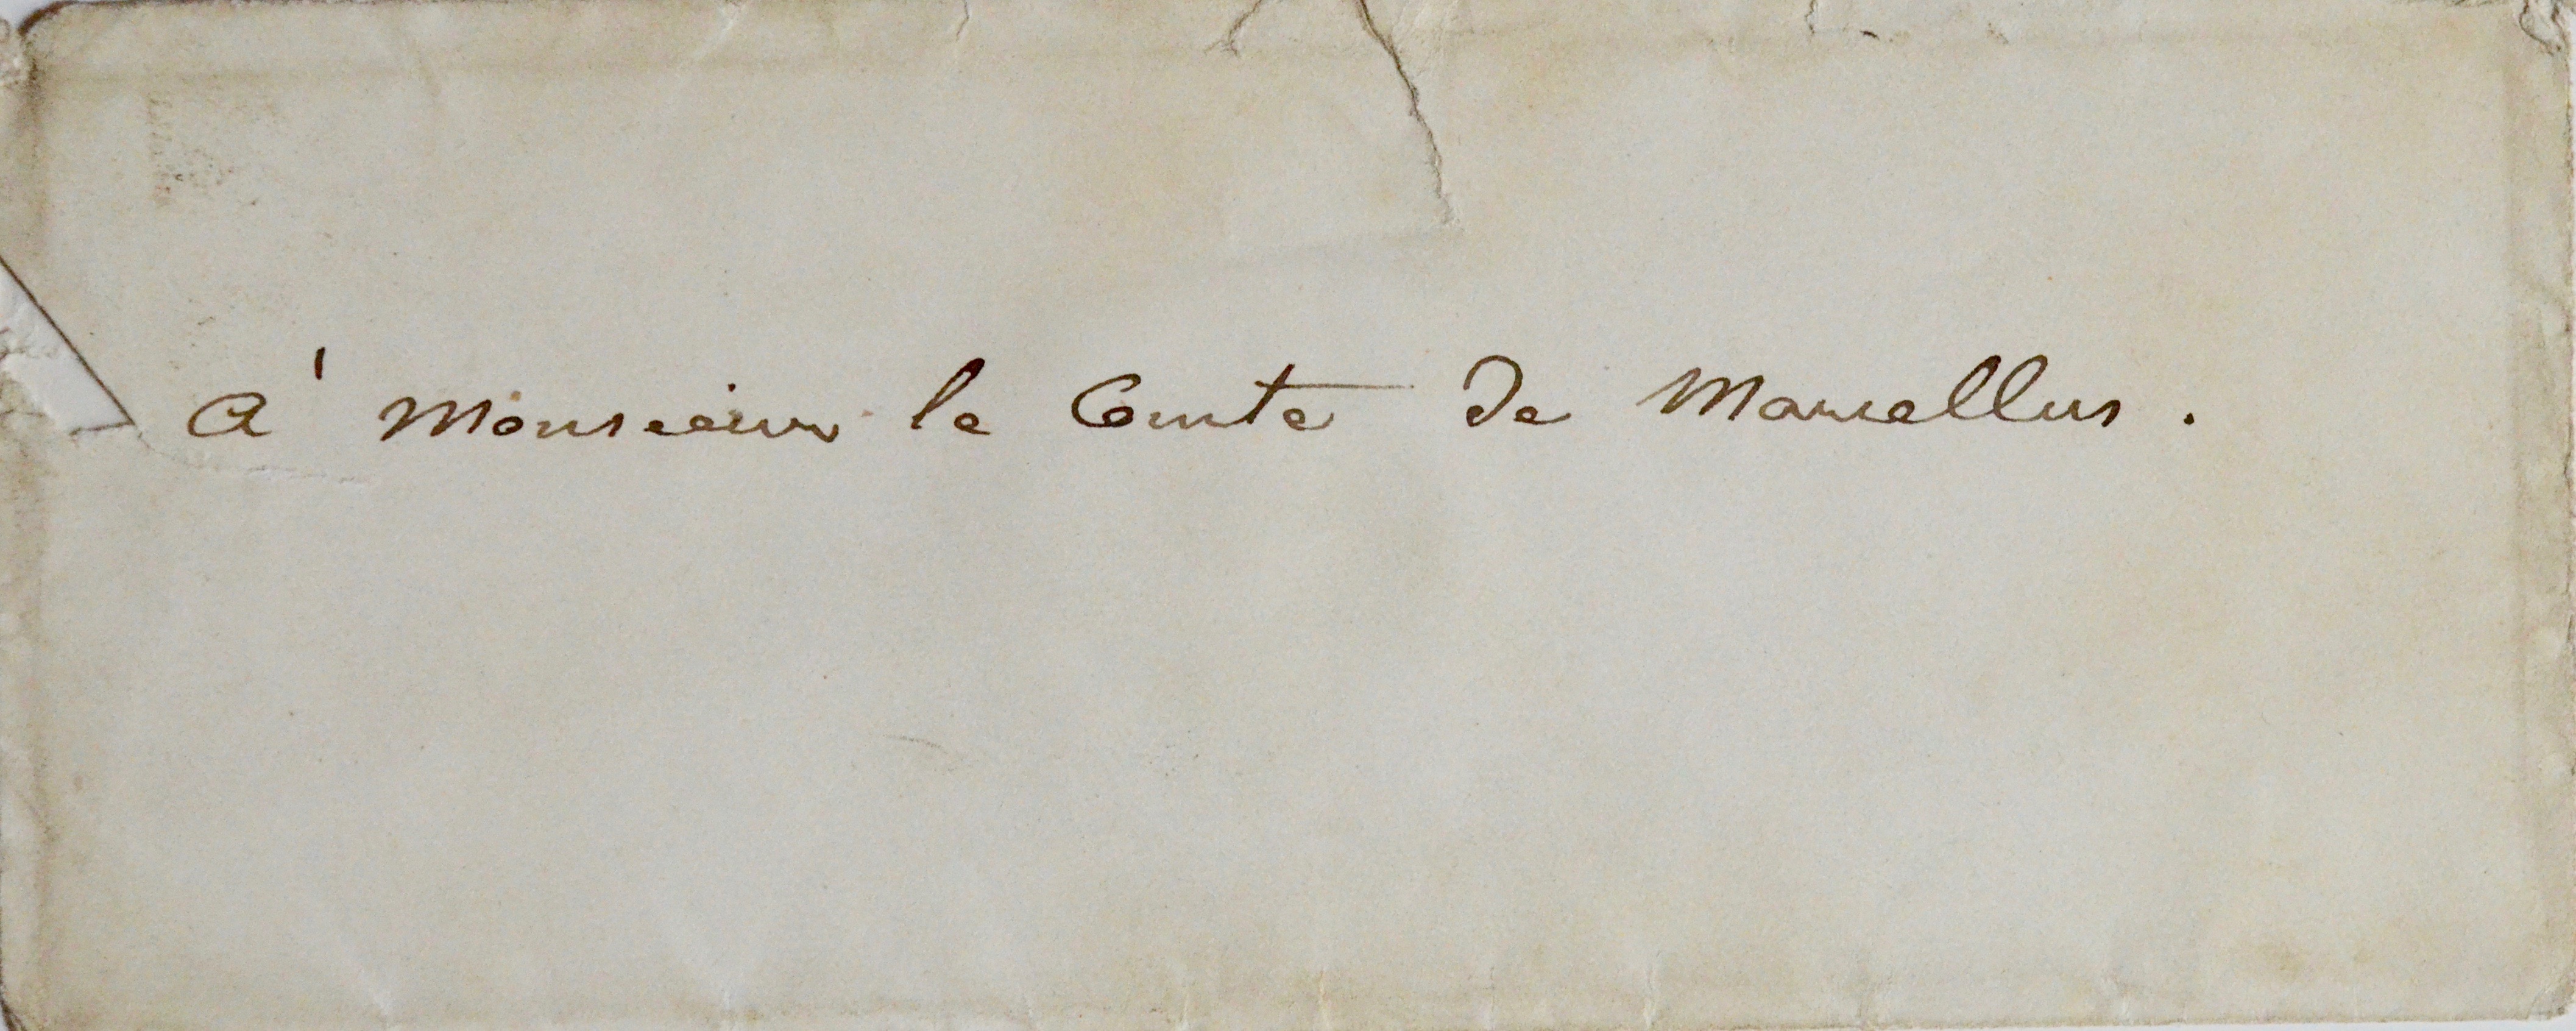 A' Monsieur le Comte de Marcellus.